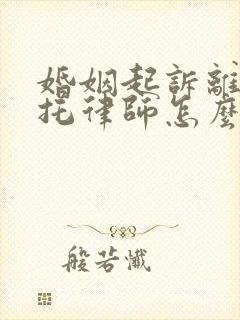 婚姻起訴離
托律師怎麼
般若懺